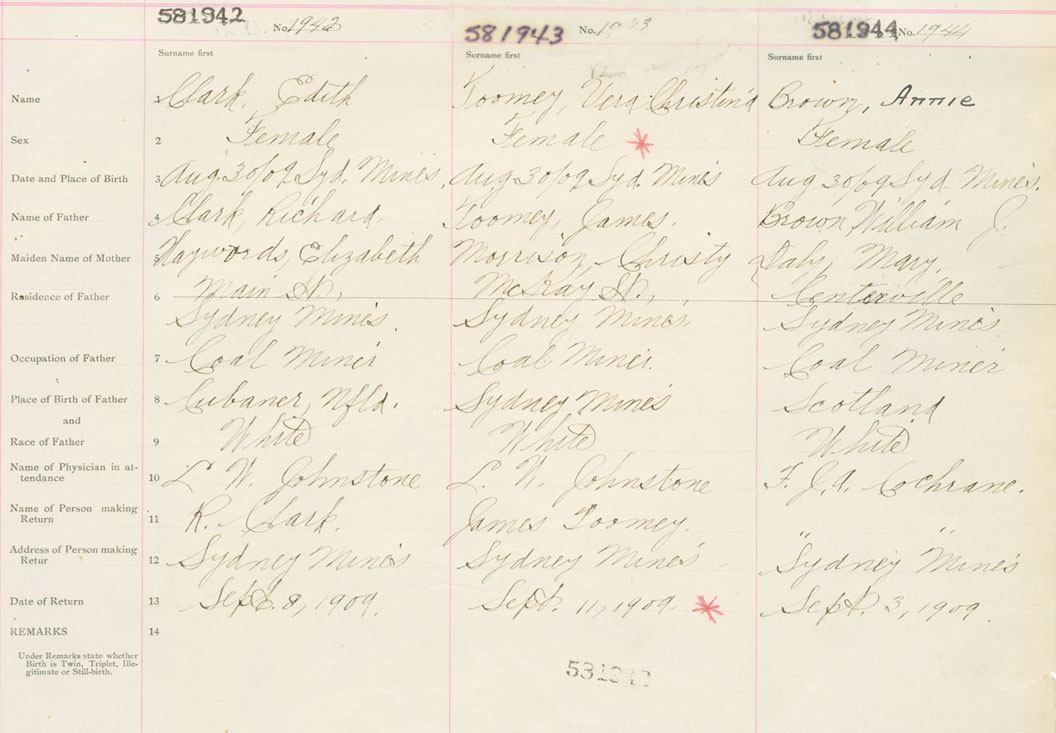 581942 No. 1942 581943 No. 1943 581944 No. 1944
Surname first Surname first Surname first
Name 1 Clark, Edith Toomey, Vera Christina Brown, Annie
Sex 2 Female Female Female
Date and Place of Birth 3 Aug 30/09 Syd. Mines, Aug 30/09 Syd. Mines Aug 30/09 Syd. Mines.
Name of Father 4 Clark, Richard. Toomey, James. Brown, William J.
Maiden Name of Mother 5 Haywords, Elizabeth Morrison, Christy Mary,
Residence of Father 6 Main St, McKay St., Centerville
Sydney Mines. Sydney Mines. Sydney Mines
Occupation of Father 7 Coal Miner Coal Miner. Coal Miner
Place of Birth of Father 8 Nfld. Sydney Mines Scotland
and
Race of Father 9 White White White
Name of Physician in at-
tendance 10 L. W. Johnstone L. W. Johnstone F. J. A. Cochrane.
Name of Person making
Return 11 R. Clark. James Toomey. " "
Address of Person making
Retur 12 Sydney Mines Sydney Mines Sydney Mines
Date of Return 13 Sept 8, 1909. Sept. 11, 1909. Sept. 3, 1909.
REMARKS 14
Under Remarks state whether
Birth is Twin, Triplet, Ille-
gitimate or Still-birth.